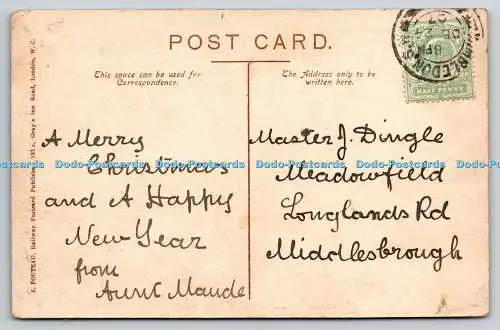 POST CARD.
This space can be used for
Correspondence.
The Address only to be
written here.
WIMBLEDON. S.
8 PM
DE 24
07
HALF PENNY
F. POUTEAU, Railway Postcard Publisher, 231a, Gray's Inn Road, London, W.C.
A Merry
Christmas
and A Happy
New Year
from
Aunt Maude
Master J. Dingle
Meadowfield
Longlands Rd
Middlesbrough
Dodo-Postcards Dodo-Postcards Dodo-Postcards Dodo-Postcards Dodo-Postcards
Dodo-Postcards Dodo-Postcards Dodo-Postcards Dodo-Postcards Dodo-Postcards